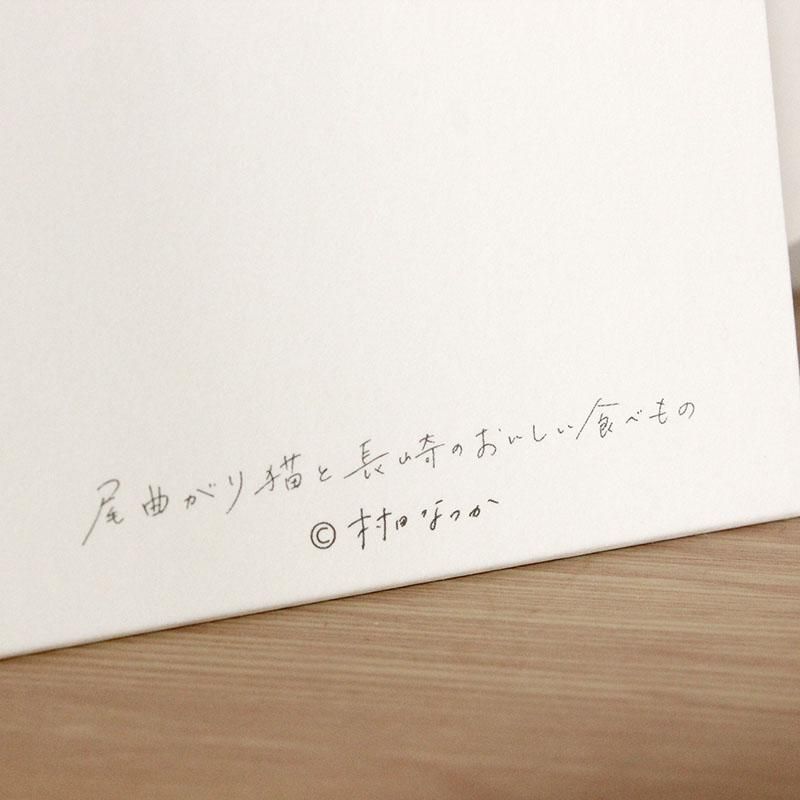 尾曲がり猫と長崎のおいしい食べもの
© 村田なつか